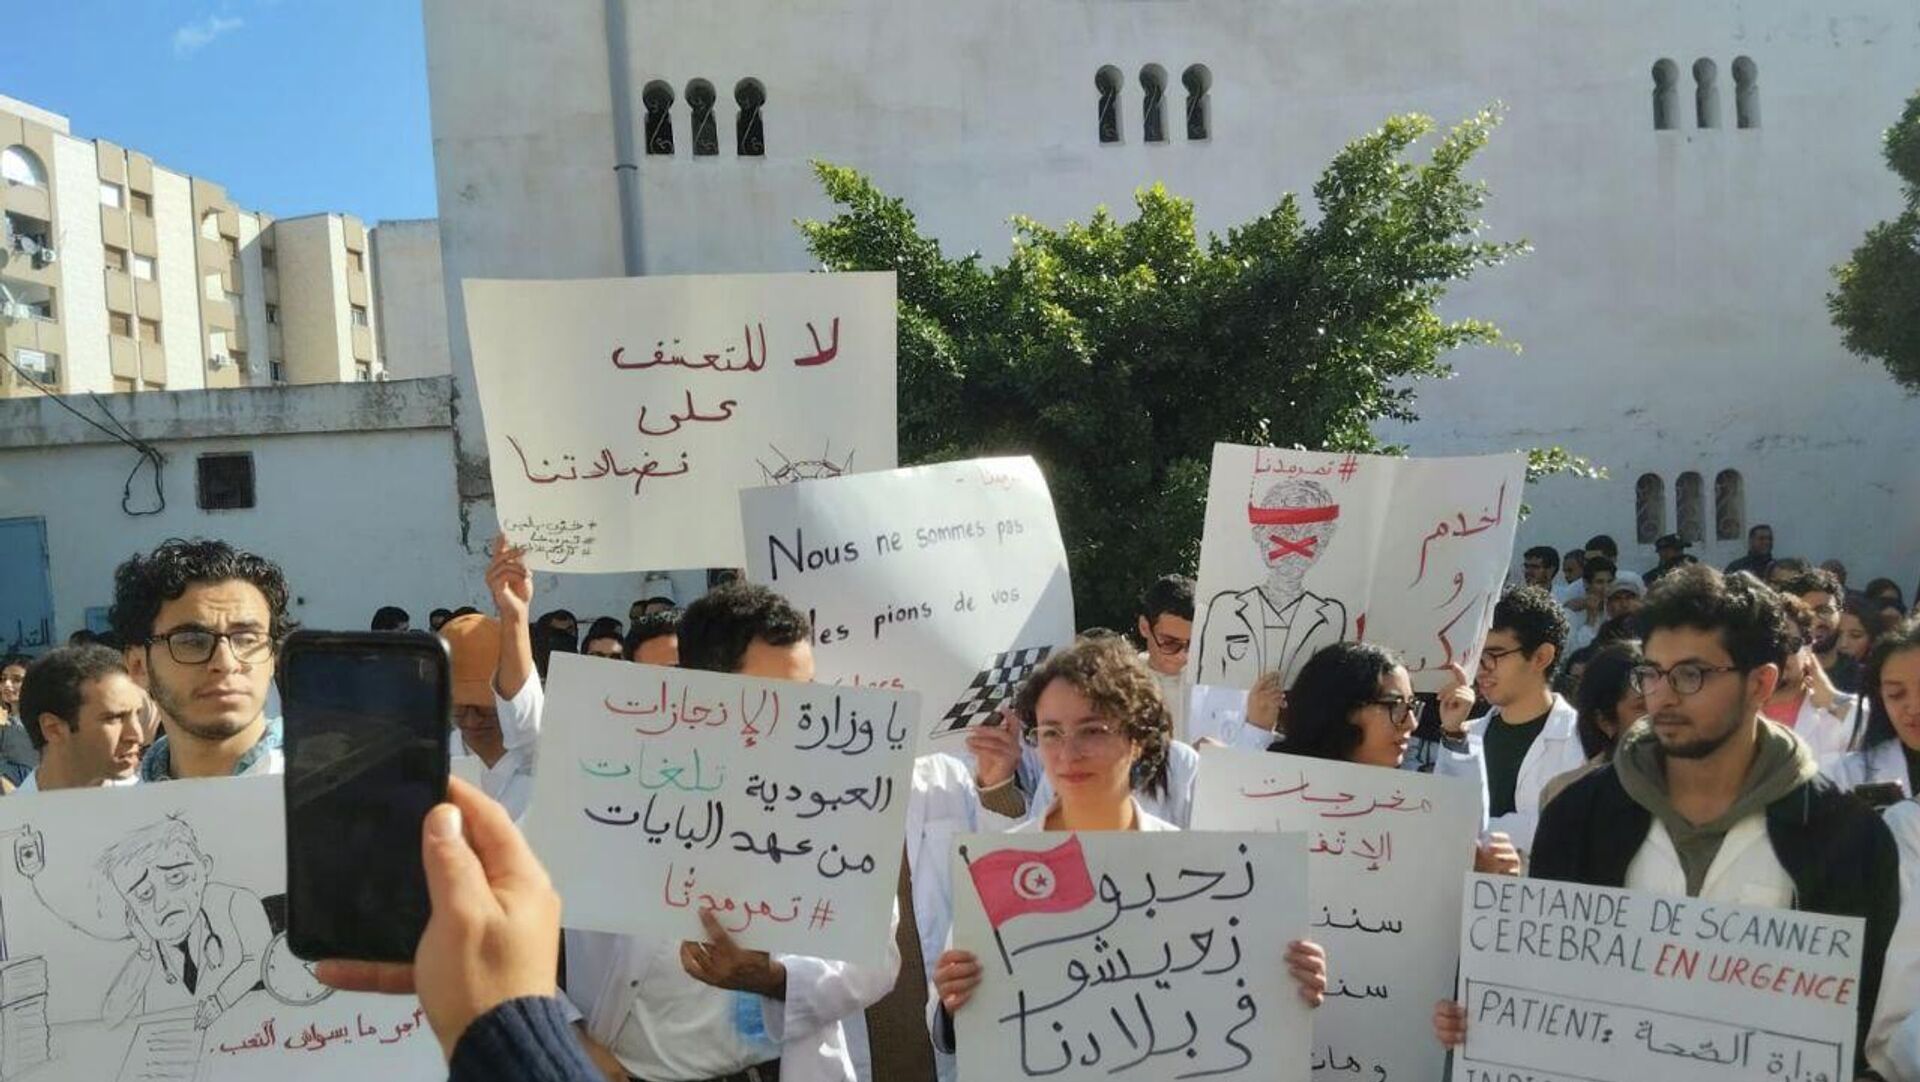 لا للتعسّف
على
نضالاتنا
Nous ne sommes pas
les pions de vos
#تمرمدنا
اخدم
و
يا وزارة الإنجازات
العبودية تلغات
من عهد البايات
#تمرمدنا
نحبو
نعيشو
في بلادنا
مخرجات
DEMANDE DE SCANNER
CEREBRAL EN URGENCE
PATIENT: وزارة الصّحة
أجر ما يسواش التعب.